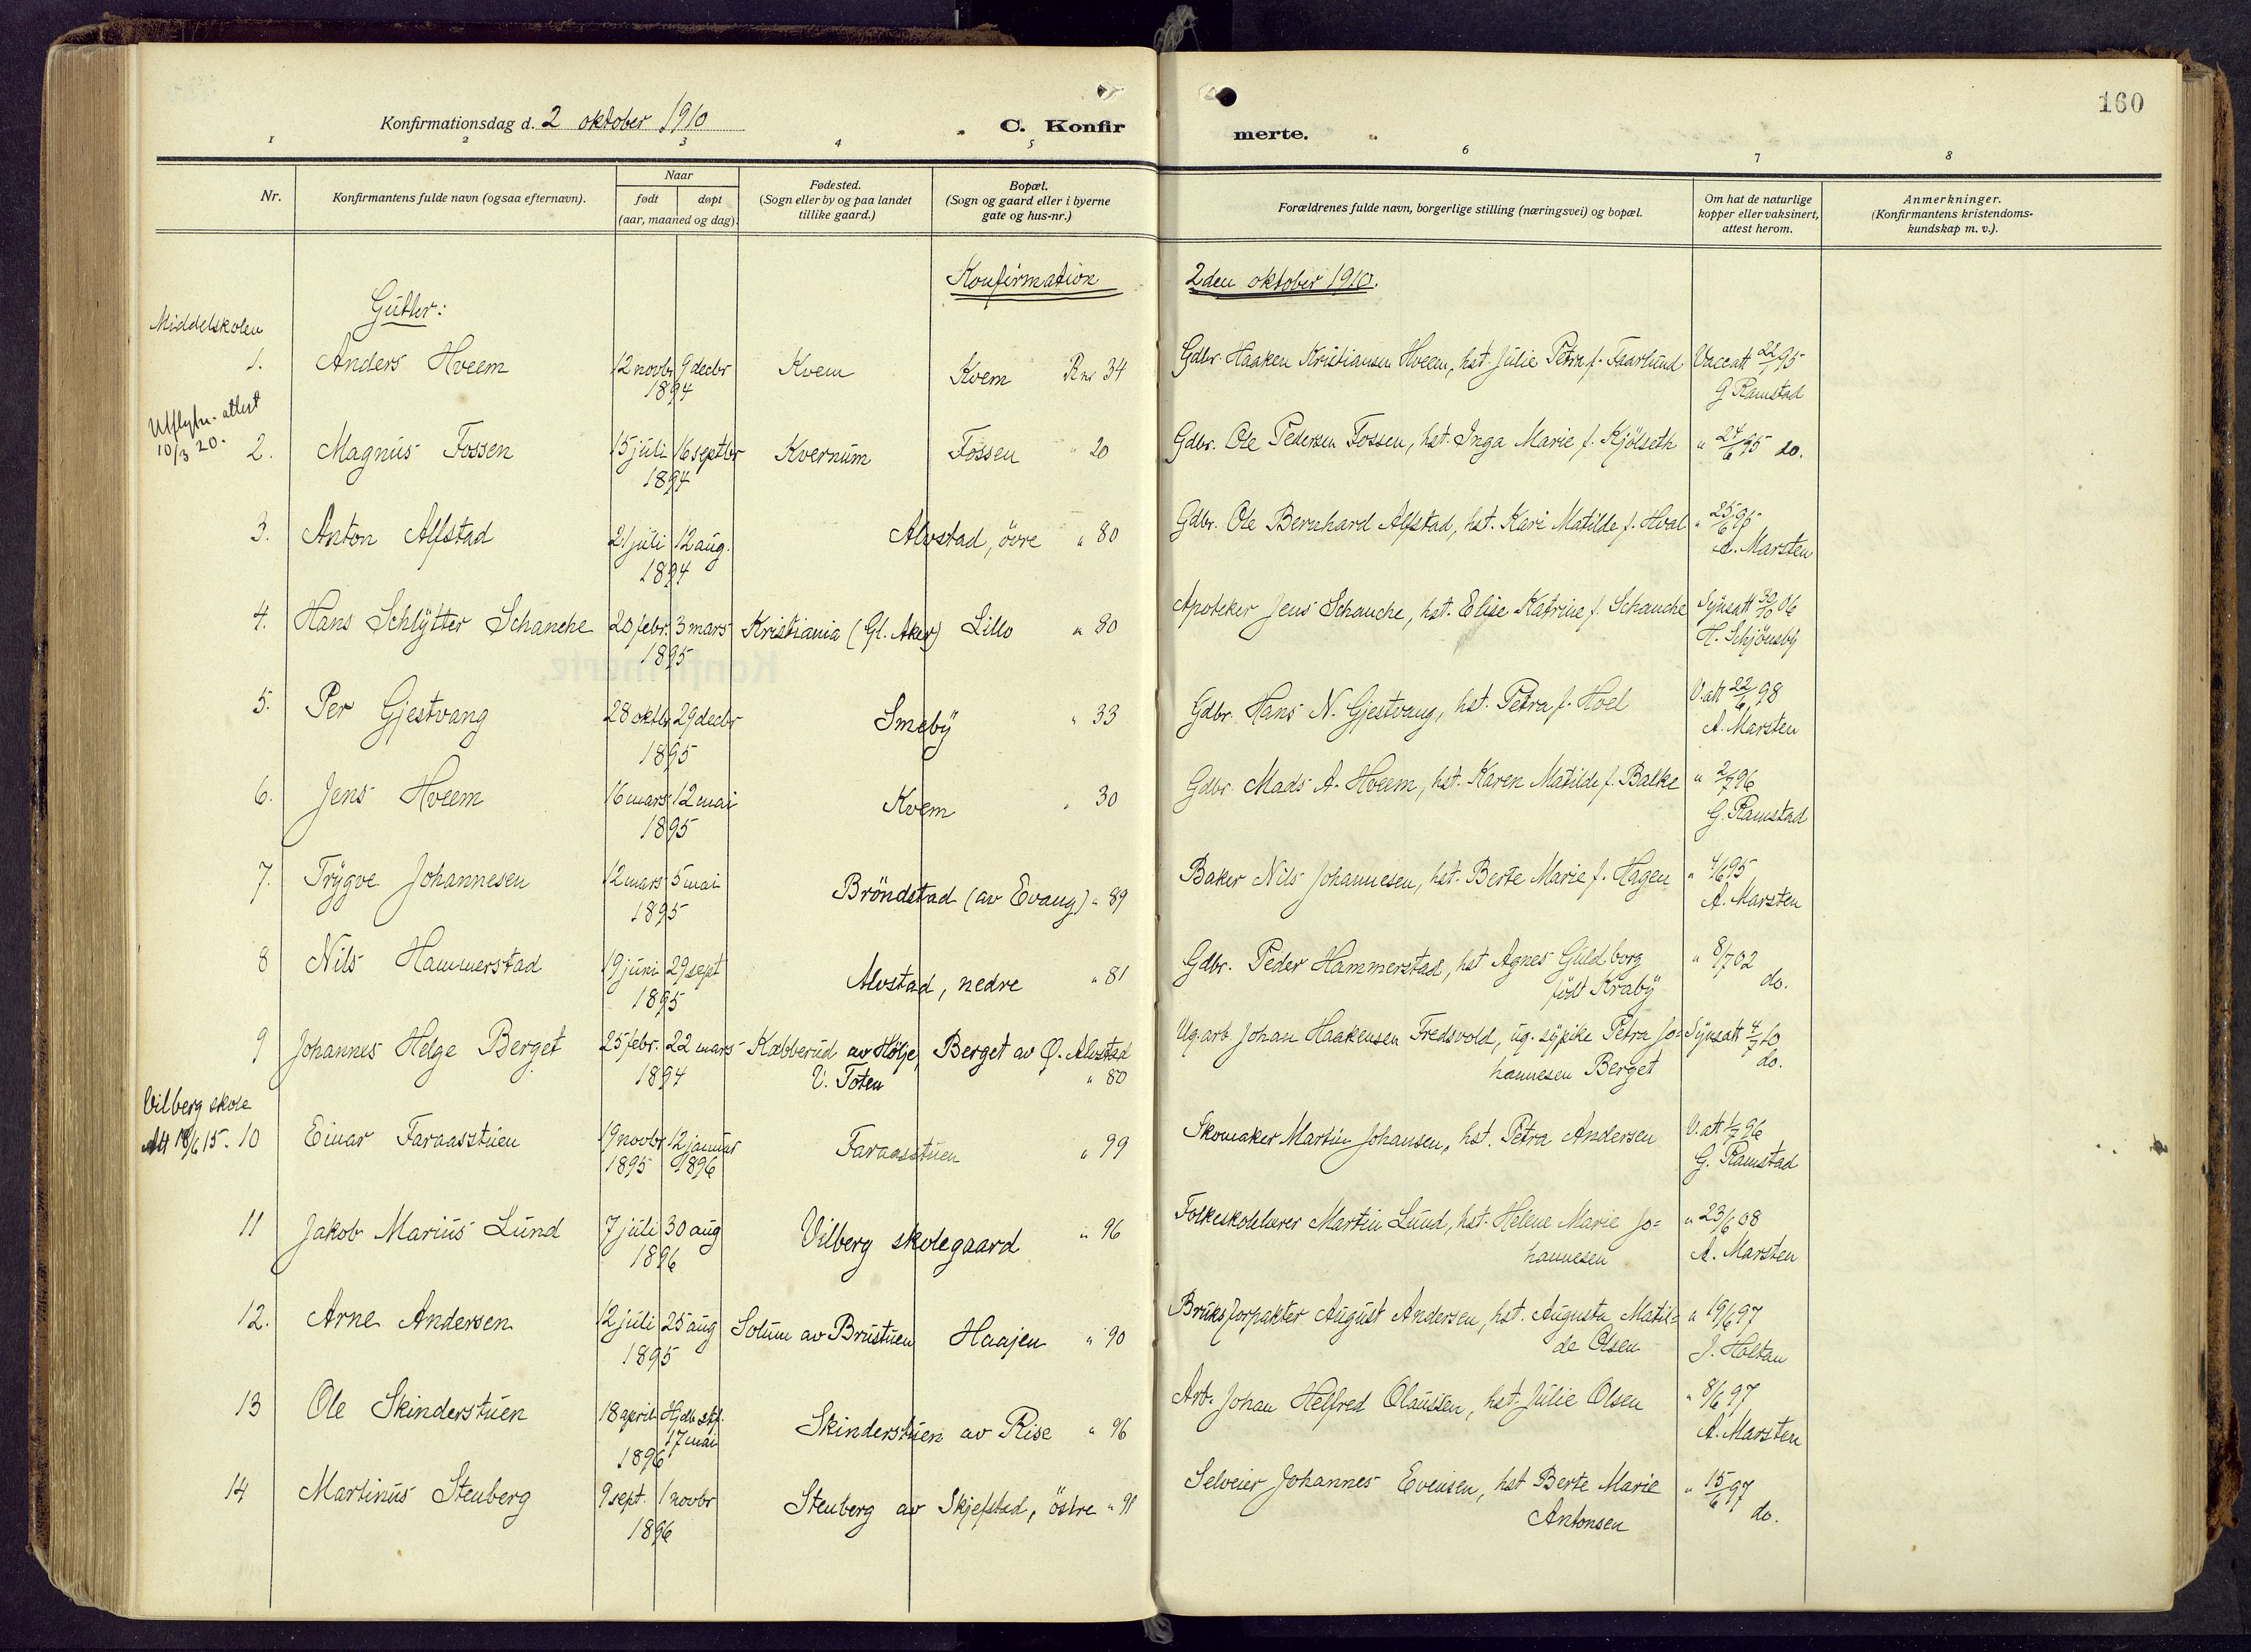 160
Konfirmationsdag d. 2 oktober 1910
C. Konfir
merte.
1 2 3 4 5 6 7 8
Nr.
Konfirmantens fulde navn (ogsaa efternavn).
Naar
født døpt
(aar, maaned og dag).
Fødested.
(Sogn eller by og paa landet
tillike gaard.)
Bopæl.
(Sogn og gaard eller i byerne
gate og hus-nr.)
Forældrenes fulde navn, borgerlige stilling (næringsvei) og bopæl.
Om hat de naturlige
kopper eller vaksinert,
attest herom.
Anmerkninger.
(Konfirmantens kristendoms-
kundskap m. v.).
Konfirmation 2den oktober 1910.
Gutter:
Middelskolen
1. Anders Hveem 12 novbr 9 decbr Kvem Kvem Rnr 34 Gdbr. Haaken Kristiansen Hveem, hst. Julie Petra f. Faarlund Vaccatt 22/1 95
1894 G Ramstad
Utflytn. attest
10/3 20.
2. Magnus Fossen 15 juli 16 septbr Kvernum Fossen " 20 Gdbr. Ole Pedersen Fossen, hst. Inga Marie f. Kjölseth " 24/6 95 do.
1894
3. Anton Alfstad 21 juli 12 aug. Alvstad, övre " 80 Gdbr. Ole Bernhard Alfstad, hst. Kari Matilde f. Hval " 25/6 95
1894 A. Marsten
4. Hans Schlytter Schanche 20 febr. 3 mars Kristiania (Gl. Aker) Lillo " 80 Apoteker Jens Schanche, hst. Elise Katrine f. Schanche Synsatt 30/6 06
1895 H. Schjönsby
5. Per Gjestvang 28 oktbr 29 decbr Smeby " 33 Gdbr. Hans N. Gjestvang, hst. Petra f. Hoel V. att 22/6 98
1895 A. Marsten
6. Jens Hveem 16 mars 12 mai Kvem " 30 Gdbr. Mads A. Hveem, hst. Karen Matilde f. Balke " 2/7 96
1895 G. Ramstad
7. Trygve Johannesen 12 mars 5 mai Bröndstad (av Evang) " 89 Baker Nils Johannesen, hst. Berte Marie f. Hagen " 4/6 95
1895 A. Marsten
8 Nils Hammerstad 19 juni 29 sept Alvstad, nedre " 81 Gdbr. Peder Hammerstad, hst Agnes Guldborg " 8/7 02
1895 født Kraby do.
9 Johannes Helge Berget 25 febr. 22 mars Kabberud av Hölje, Berget av Ö. Alvstad Ug. arb Johan Haakensen Fredsvold, ug. sypike Petra Jo= Synsatt 4/7 10
1894 V. Toten " 80 hannesen Berget do.
Vilberg skole
Att 18/6 15. 10 Einar Faraasstuen 19 novbr 12 januar Faraasstuen " 99 Skomaker Martin Johansen, hst. Petra Andersen V. att 1/7 96
1895 1896 G. Ramstad
11 Jakob Marius Lund 7 juli 30 aug Vilberg skolegaard " 96 Folkeskolelærer Martin Lund, hst. Helene Marie Jo= " 23/6 08
1896 hannesen A. Marsten
12. Arne Andersen 12 juli 25 aug Solum av Brustuen Haajen " 90 Bruksforpakter August Andersen, hst. Augusta Matil= " 19/6 97
1895 de Olsen J. Holtan
13 Ole Skinderstuen 18 april Hjdb stf. Skinderstuen av Rise " 96 Arb. Johan Helfred Olaussen, hst. Julie Olsen " 8/6 97
17 mai
1896 A. Marsten
14 Martinus Stenberg 9 sept. 1 novbr Stenberg av Skjefstad, östre " 91 Selveier Johannes Evensen, hst Berte Marie " 15/6 97
1896 Antonsen do.